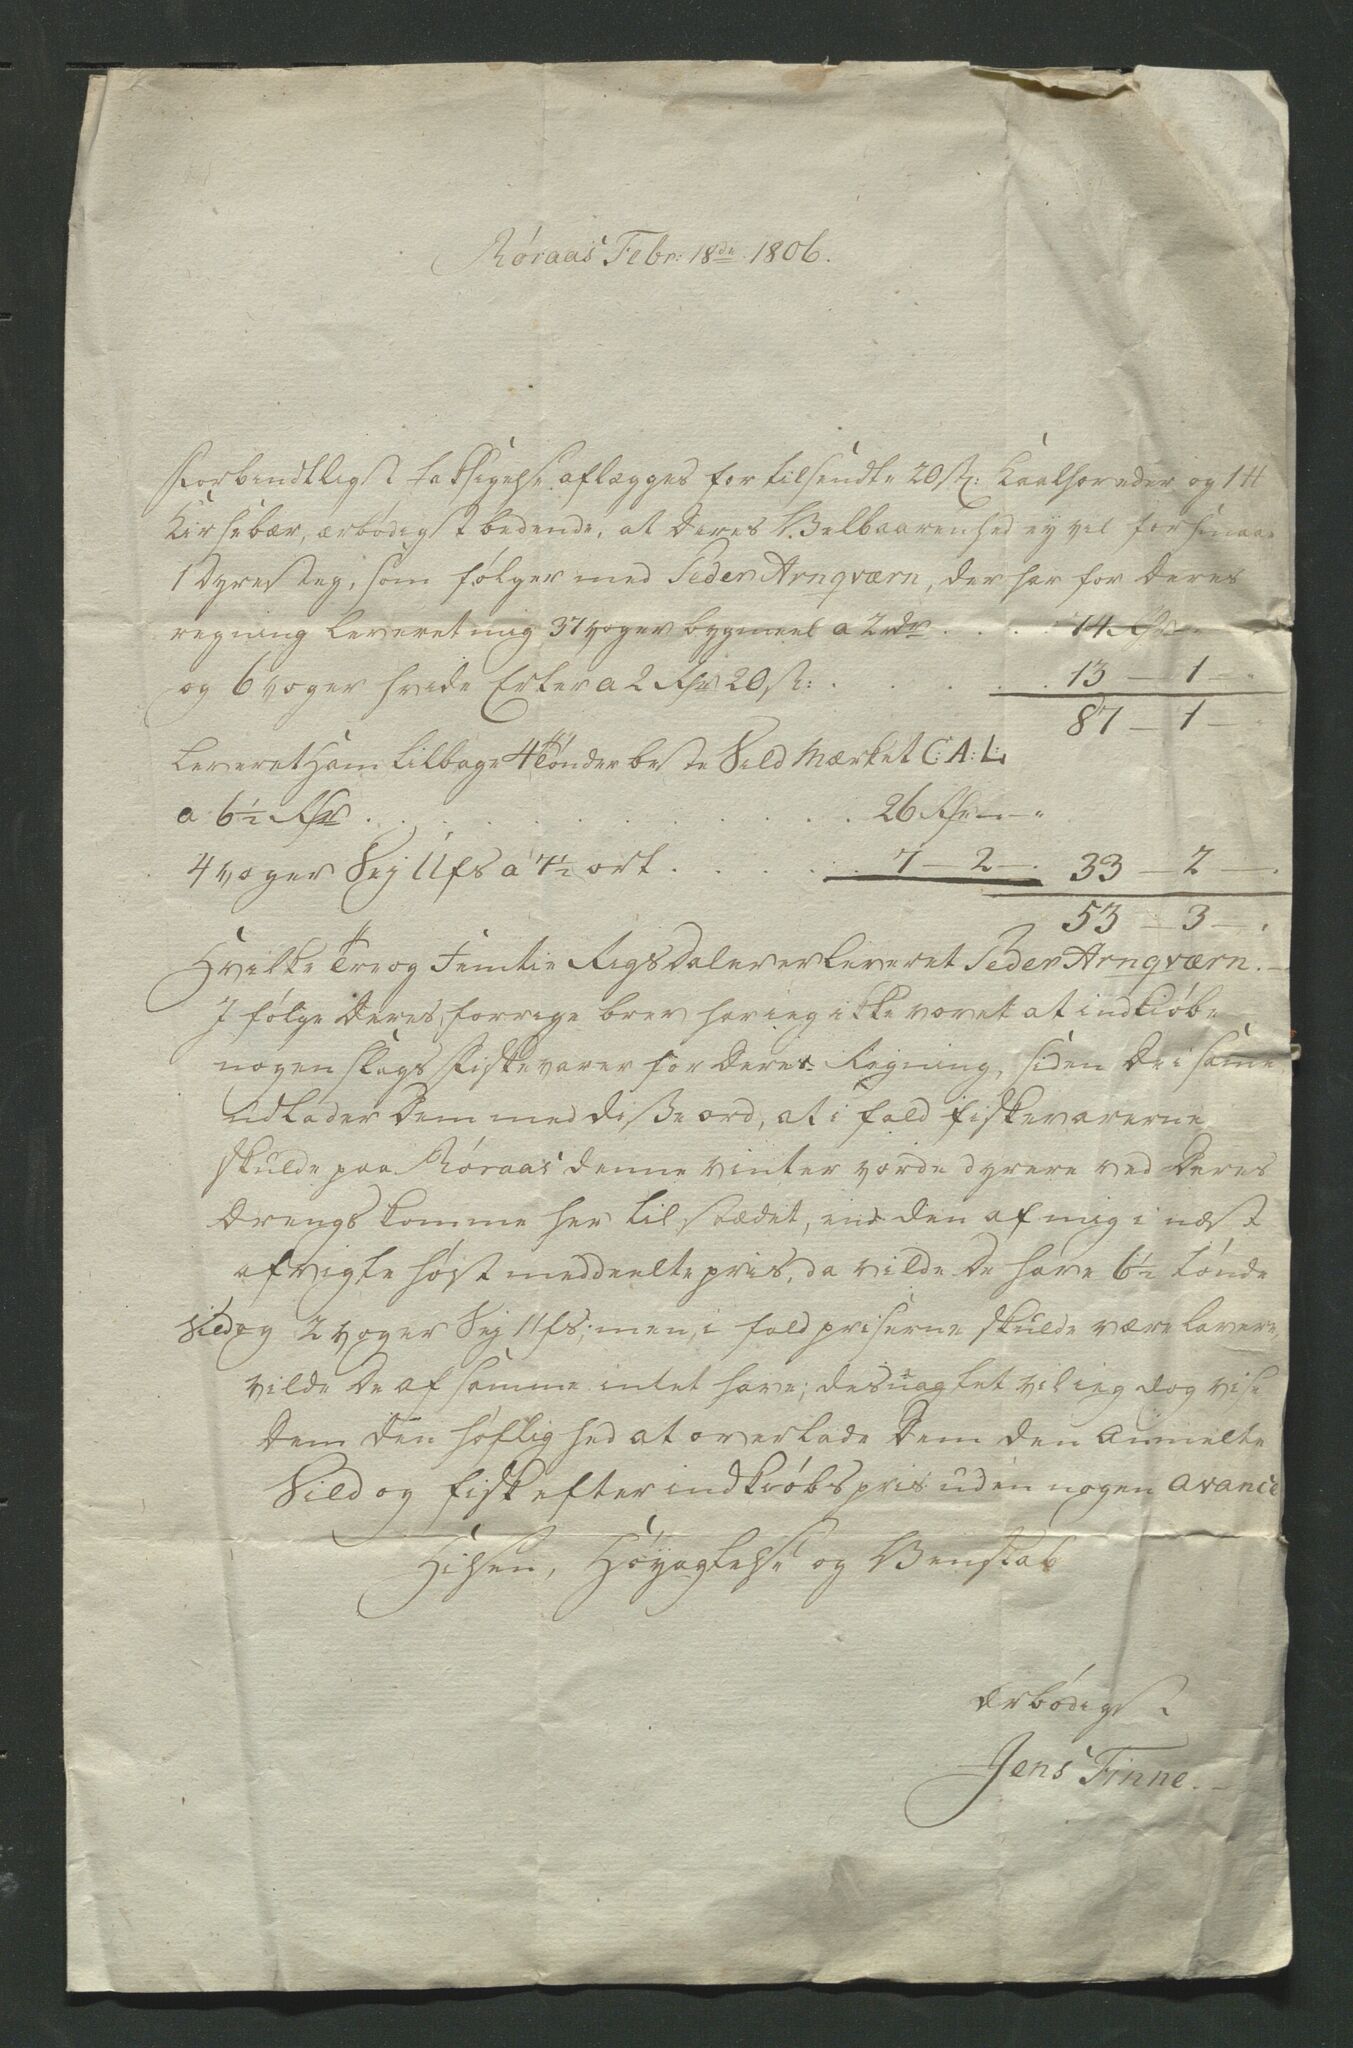 Røraas Febr: 18de 1806.
Forbindtligst taksigelse aflægges for tilsendte 20 st: Kaalhoveder og 1 H
Kirsebær, ærbødigst bedende, at Deres Velbaarenhed ey vil forsmaae
1 dyresteg, som følger med Peder Arnqværn, der har for Deres
regning leveret mig 37 voger bygmeel a 2 rdr . . . . 74 Rhr — "
og 6 voger hvide Erter a 2 Rhr 20 st: . . . . . 13 — 1 — "
87 — 1 — "
Leveret Ham tilbage 4 Tønder beste Sild Mærket C: A: L:
a 6½ Rhr . . . . . . . . . 26 Rhr — — "
4 voger Sej 11fs a 7½ ort . . . . . 7 — 2 — . 33 — 2 — .
53 — 3 — .
Hvilke Tre og Femtie Rigsdaler er leveret Peder Arnqværn. —
I følge Deres forrige brev har ieg ikke vovet at indkiøbe
nogen slags Fiskevarer for Deres Regning, siden De i same
udlader Dem med disse ord, at i fald fiskevarerne
skulde paa Røraas denne vinter vorde dyrere ved Deres
Drengs komme her til stædet, end den af mig i næst
afvigte høst meddeelte pris, da vilde De have 6½ tønde
Sild og 2 voger Sej 11fs; men, i fald priserne skulde være lavere,
vilde De af samme intet have; desuagtet vil ieg dog vise
Dem den høflighed at overlade Dem den anmelte
Sild og fisk efter indkiøbs pris uden nogen avance
Hilsen, Høyagtelse og Venskab
ærbødigst
Jens Finne. —